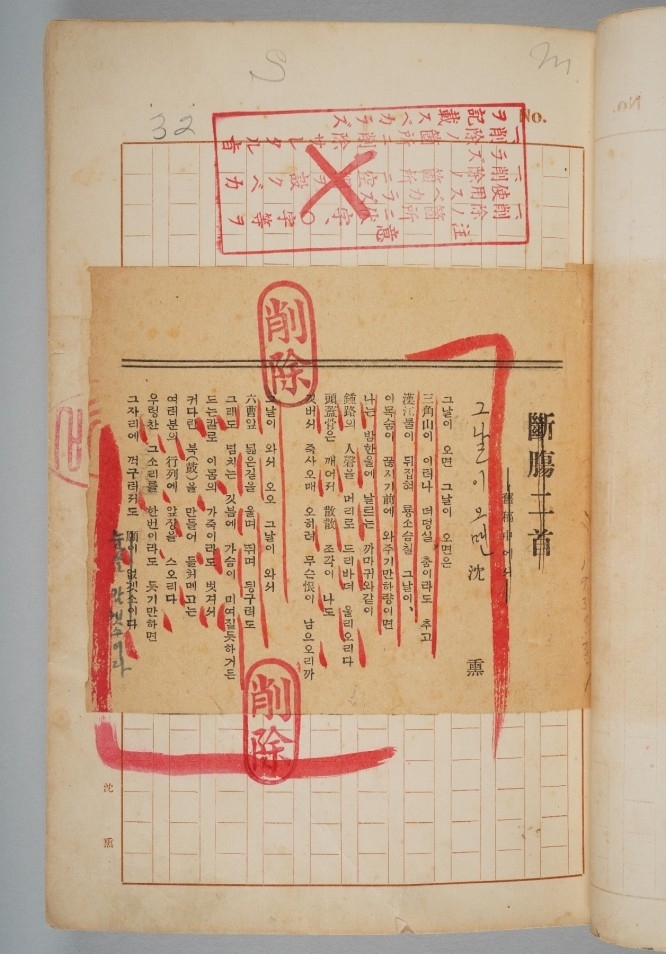 S
m
32
No.
注意
削除サレタル旨
記載スベカラズ
削除
斷膓二首
—舊稿中에서—
그날이오면 沈 熏
그날이 오면 그날이 오면은
三角山이 이러나 더덩실 춤이라도 추고
漢江물이 뒤집혀 룡소슴칠 그날이、
이목숨이 끊지기前에 와주기만하량이면
나는 밤한울에 날르는 까마귀와같이
鍾路의 人磬을 머리로 드리바더 울리오리다
頭盖骨은 깨어저 散散 조각이 나도
깃버서 죽사오매 오히려 무슨恨이 남으오리까
그날이 와서 오오 그날이 와서
六曹앞 넓은길을 울며 뛰며 뒹구러도
그래도 넘치는 깃븜에 가슴이 미여질듯하거든
드는칼로 이몸의 가죽이라도 벗겨서
커다란 북(鼓)을 만들어 들처메고는
여러분의 行列에 앞장을 스오리다
우렁찬 그소리를 한번이라도 듯기만하면
그자리에 꺽구러저도 願이 없겟소이다
눈을 감겟소이다
削除
沈 熏